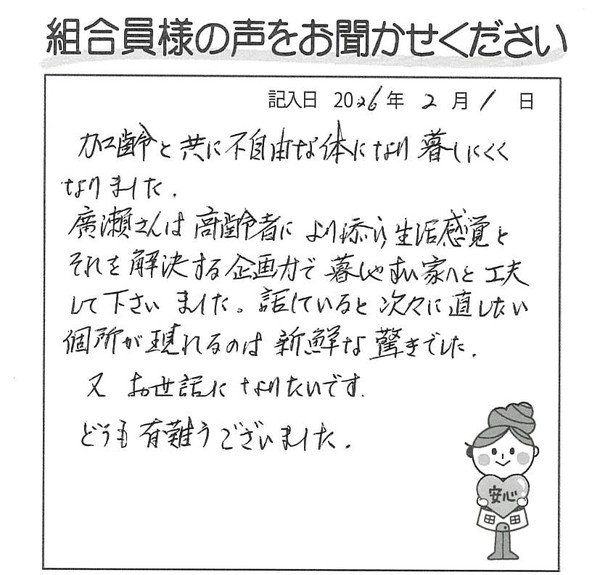 組合員様の声をお聞かせください
記入日 2026年 2月 1日
加齢と共に不自由な体になり暮しにくく
なりました.
廣瀬さんは高齢者により添う生活感覚と
それを解決する企画力で暮しやすい家へと工夫
して下さいました。話していると次々に直したい
個所が現れるのは新鮮な驚きでした.
又 お世話になりたいです.
どうも有難うございました.
安心